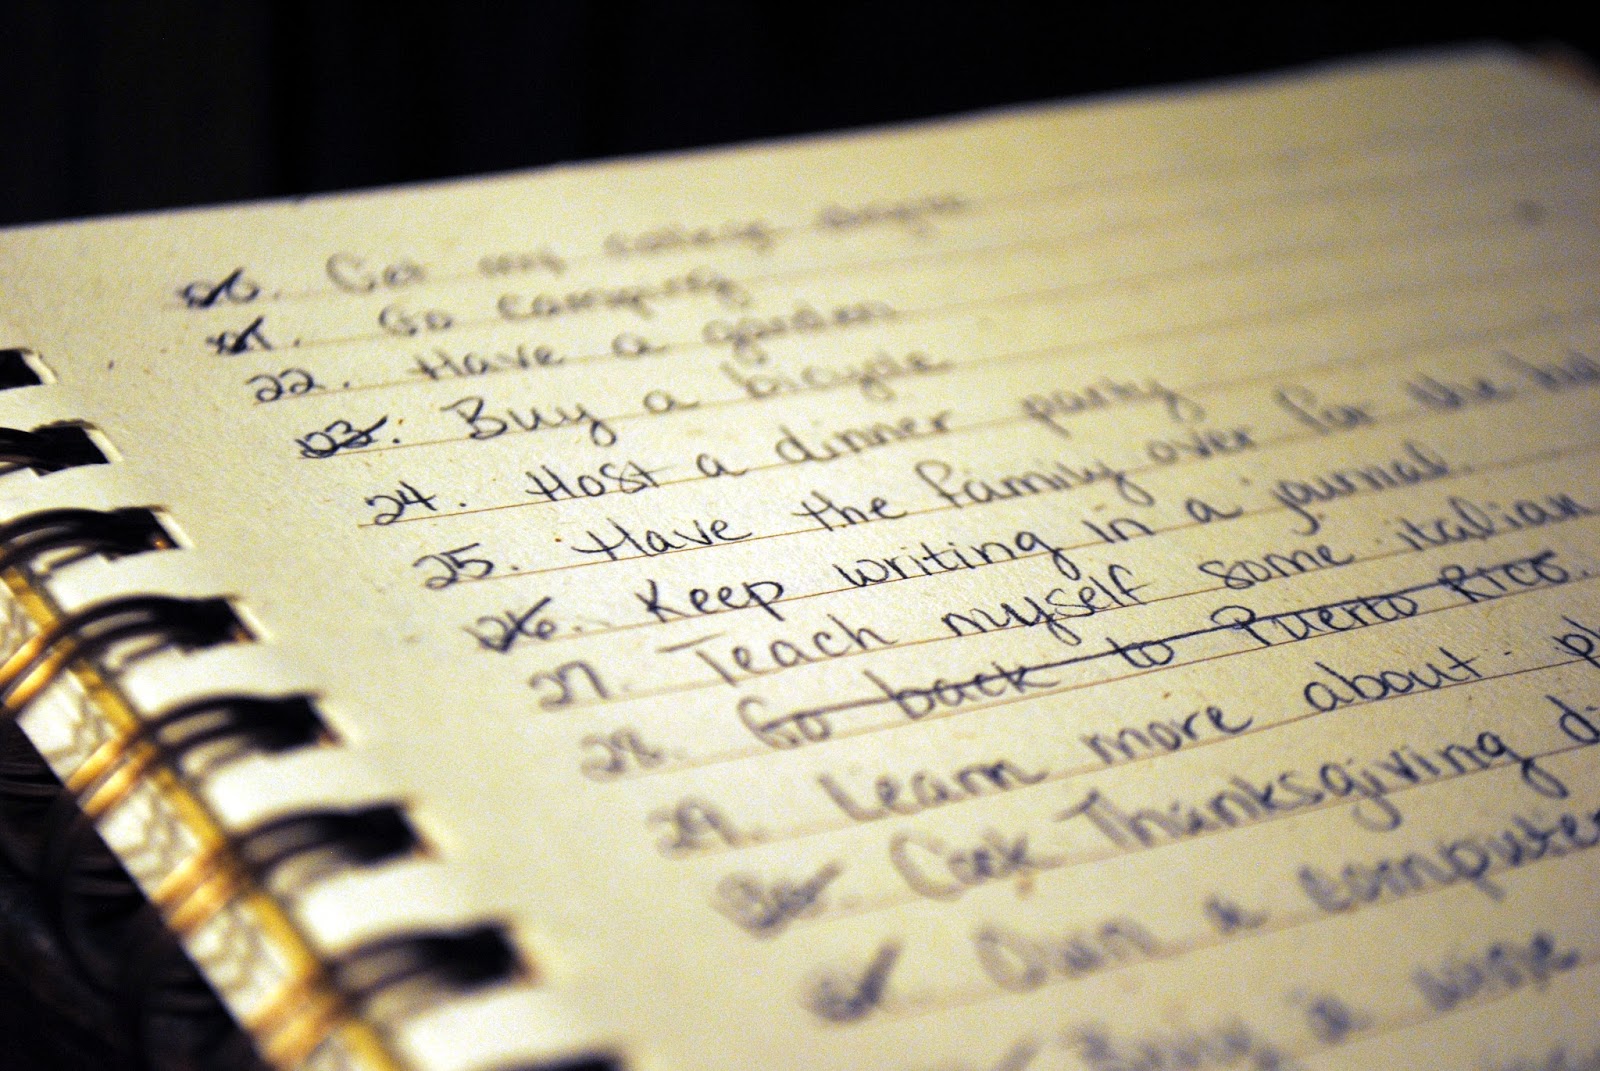 20. Get my
21. Go camping
22. Have a garden
23. Buy a bicycle
24. Host a dinner party
25. Have the family over for the
26. Keep writing in a journal.
27. Teach myself some italian
28. Go back to Puerto Rico.
29. Learn more about
30. Cook Thanksgiving
31. Own a computer
Buy a